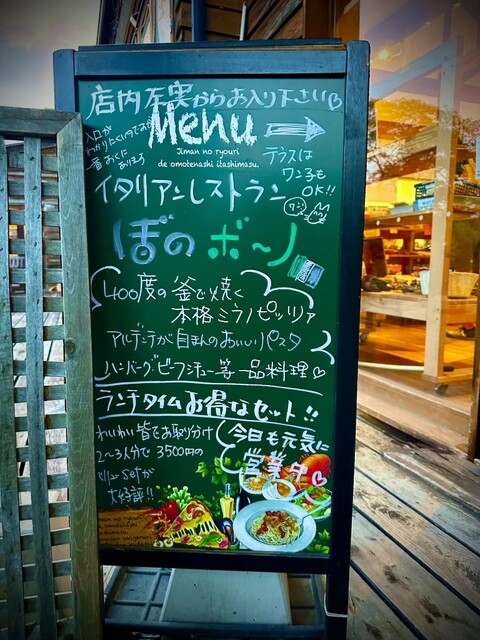 店内左奥からお入り下さい
入口が
わかりにくいですが
一番おくに
あります
Menu
Jiman no ryouri
de omotenashi itashimasu.
テラスは
ワン子も
OK!!
ワン!
イタリアンレストラン
ぼのボ〜ノ
400度の釜で焼く
本格ミラノピッツァ
アルデンテが自まんのおいしいパスタ
ハンバーグ ビーフシチュー等 一品料理♡
ランチタイムお得なセット!!
わいわい皆でお取り分け
2〜3人分で 3500円の
setが
大好評!!
今日も元気に
営業中